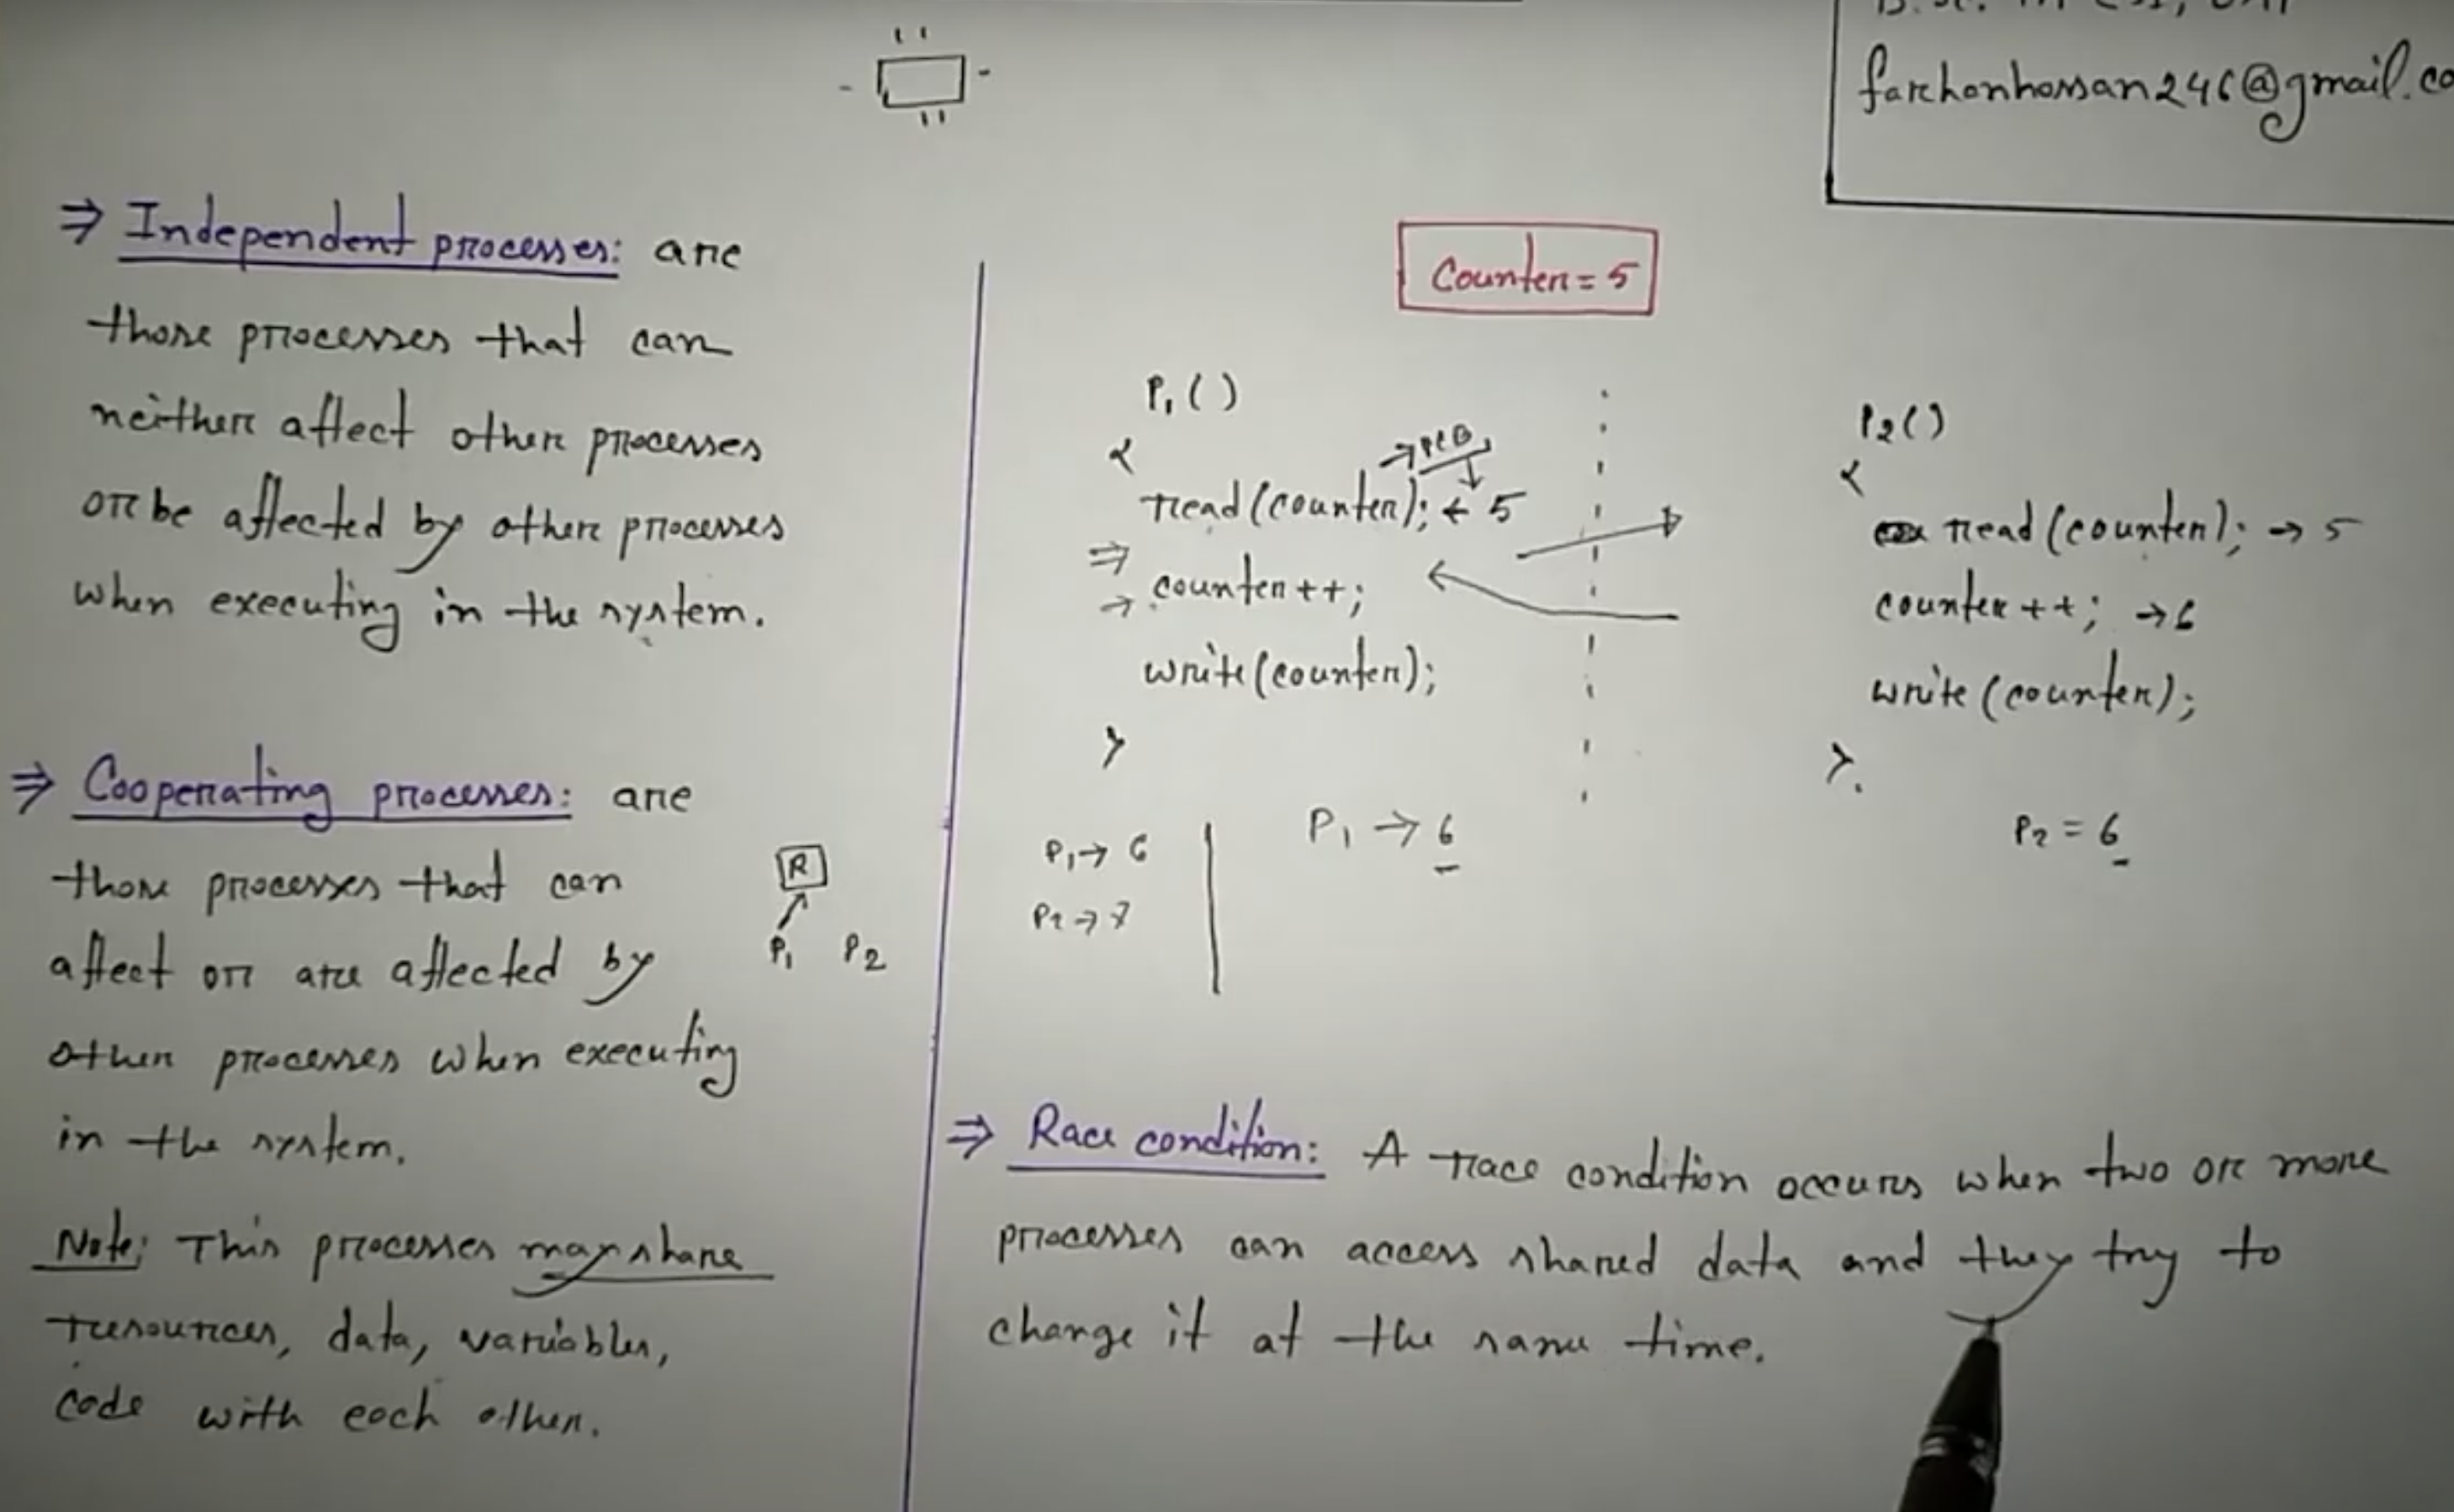 farhanhossan246@gmail.co
⇒ Independent processes: are
those processes that can
neither affect other processes
or be affected by other processes
when executing in the system.
⇒ Cooperating processes: are
those processes that can
affect or are affected by
other processes when executing
in the system.
Note: This processes may share
resources, data, variables,
code with each other.
R
P1 P2
Counter = 5
P1()
{
→ PCB
read(counter); ← 5
⇒ counter++;
write(counter);
}
P1 → 6
P1 → 6
P2 → 7
P2()
{
read(counter); → 5
counter++; → 6
write(counter);
}.
P2 = 6
⇒ Race condition: A race condition occurs when two or more
processes can access shared data and they try to
change it at the same time.